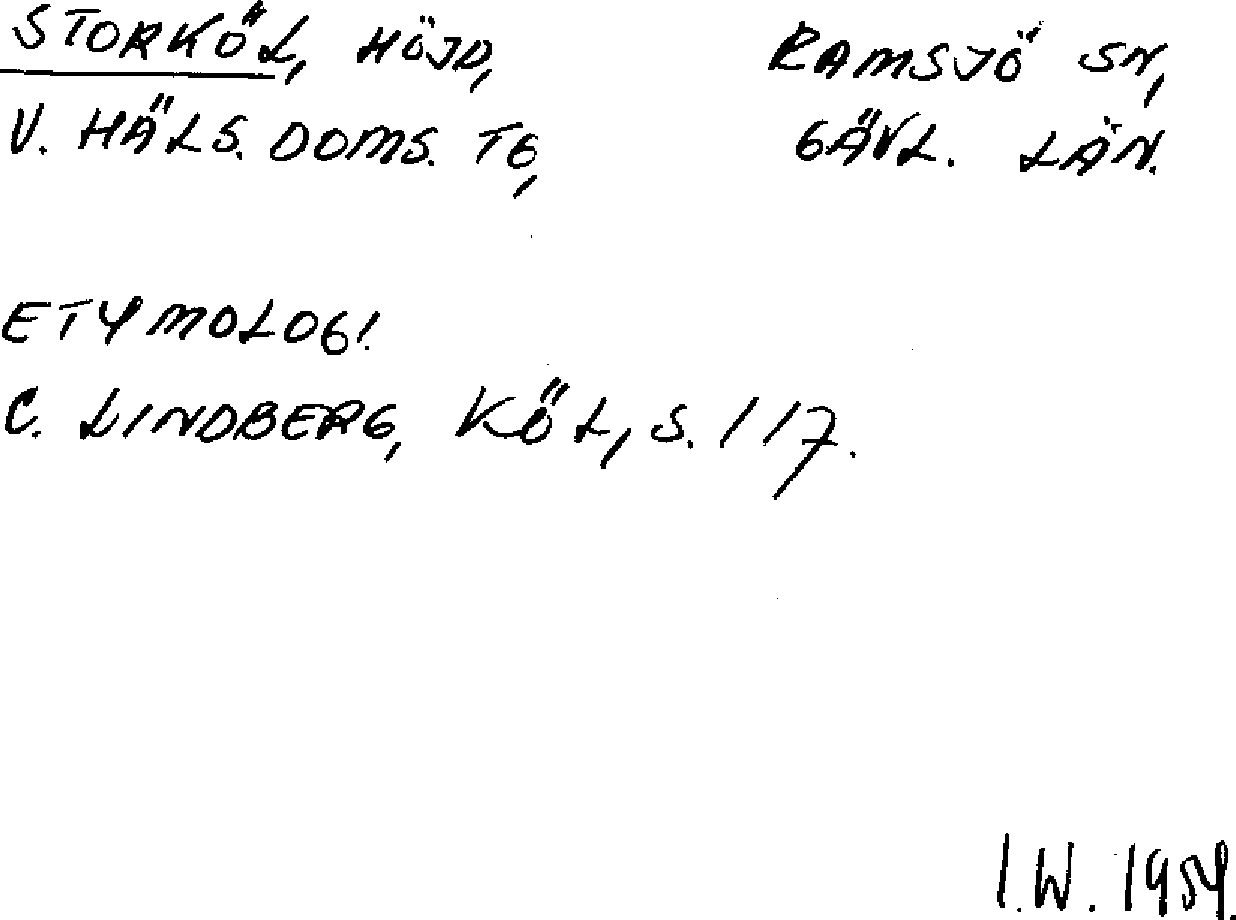 STORKÖL, HÖJD, RAMSJÖ SN,
V. HÄLS. DOMS. TG, GÄVL. LÄN.
ETYMOLOGI.
C. LINDBERG, KÖL, S. 117.
I.W. 1954.